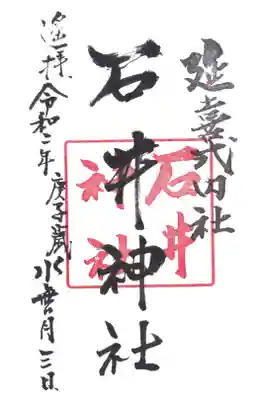 延喜式内社
石井神社
石井
神社
遥拝 令和二年 庚子歳 水無月三日